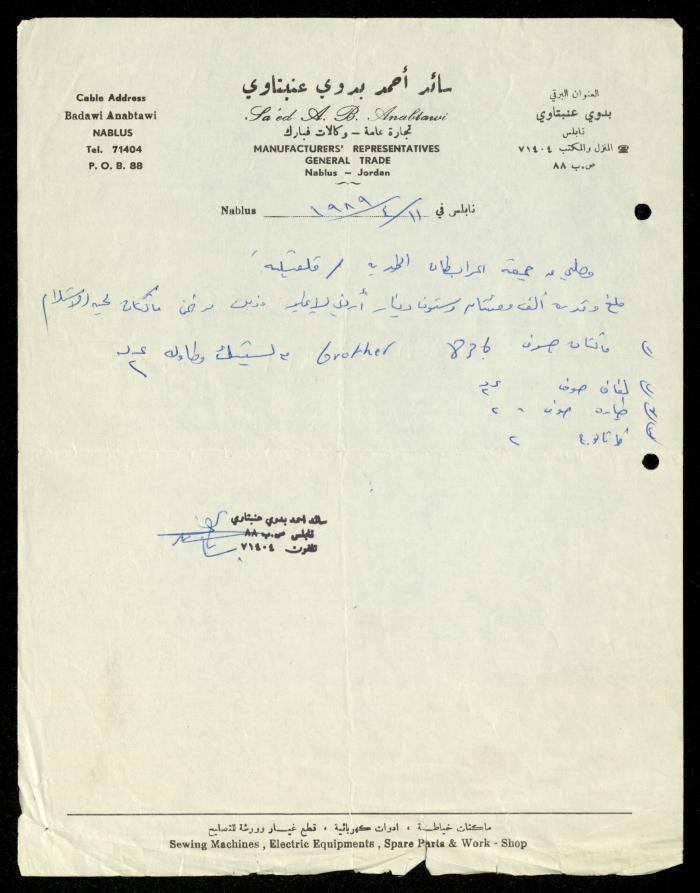 سائد أحمد بدوي عنبتاوي
Sa'ed A. B. Anabtawi
تجارة عامة - وكالات فبارك
MANUFACTURERS' REPRESENTATIVES
GENERAL TRADE
Nablus - Jordan
Cable Address
Badawi Anabtawi
NABLUS
Tel. 71404
P. O. B. 88
العنوان البرقي
بدوي عنبتاوي
نابلس
المنزل والمكتب ٧١٤٠٤
ص.ب ٨٨
Nablus ١٩٨٩/٤/١١ نابلس في
وصلني من جمعية المرابطات الخيرية / قلقيلية
مبلغ وقدره ألف ومئتان وستون دينار أردني لا غير وذلك من ثمن ماكنات
١) ماكنات صوف 836 Brother بلاستيك وطاولة عدد ٢
٢) لفاف صوف عدد ٢
٣) طيارة صوف ٢
٤) ٢
سائد احمد بدوي عنبتاوي
نابلس ص.ب ٨٨
تلفون ٧١٤٠٤
ماكنات خياطة ، ادوات كهربائية ، قطع غيار وورشة للتصليح
Sewing Machines , Electric Equipments , Spare Parts & Work - Shop